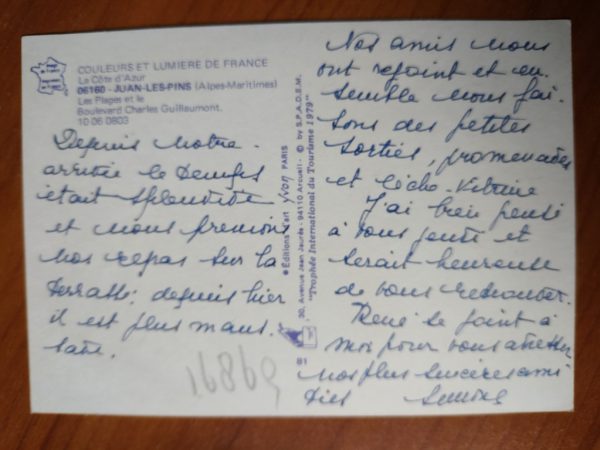 COULEURS ET LUMIERE DE FRANCE
La Côte d'Azur
06160 - JUAN-LES-PINS (Alpes-Maritimes)
Les Plages et le
Boulevard Charles Guillaumont.
10 06 0803
Depuis notre
arrivée le temps
était splendide
et nous prenions
nos repas sur la
terrasse; depuis hier
il est plus maus.
sade.
16869
Editions d'art yvon PARIS
30, Avenue Jean Jaurès - 94110 Arcueil - © by S.P.A.D.E.M.
"Trophée International du Tourisme 1979"
81
Nos amis nous
ont rejoint et en.
semble nous fai.
sons des petites
sorties, promenades
et lèche-vitrine
J'ai bien pensé
à vous et
serait heureuse
de vous
René se joint à
moi pour vous adresser
nos plus sincères ami
tiés Simone